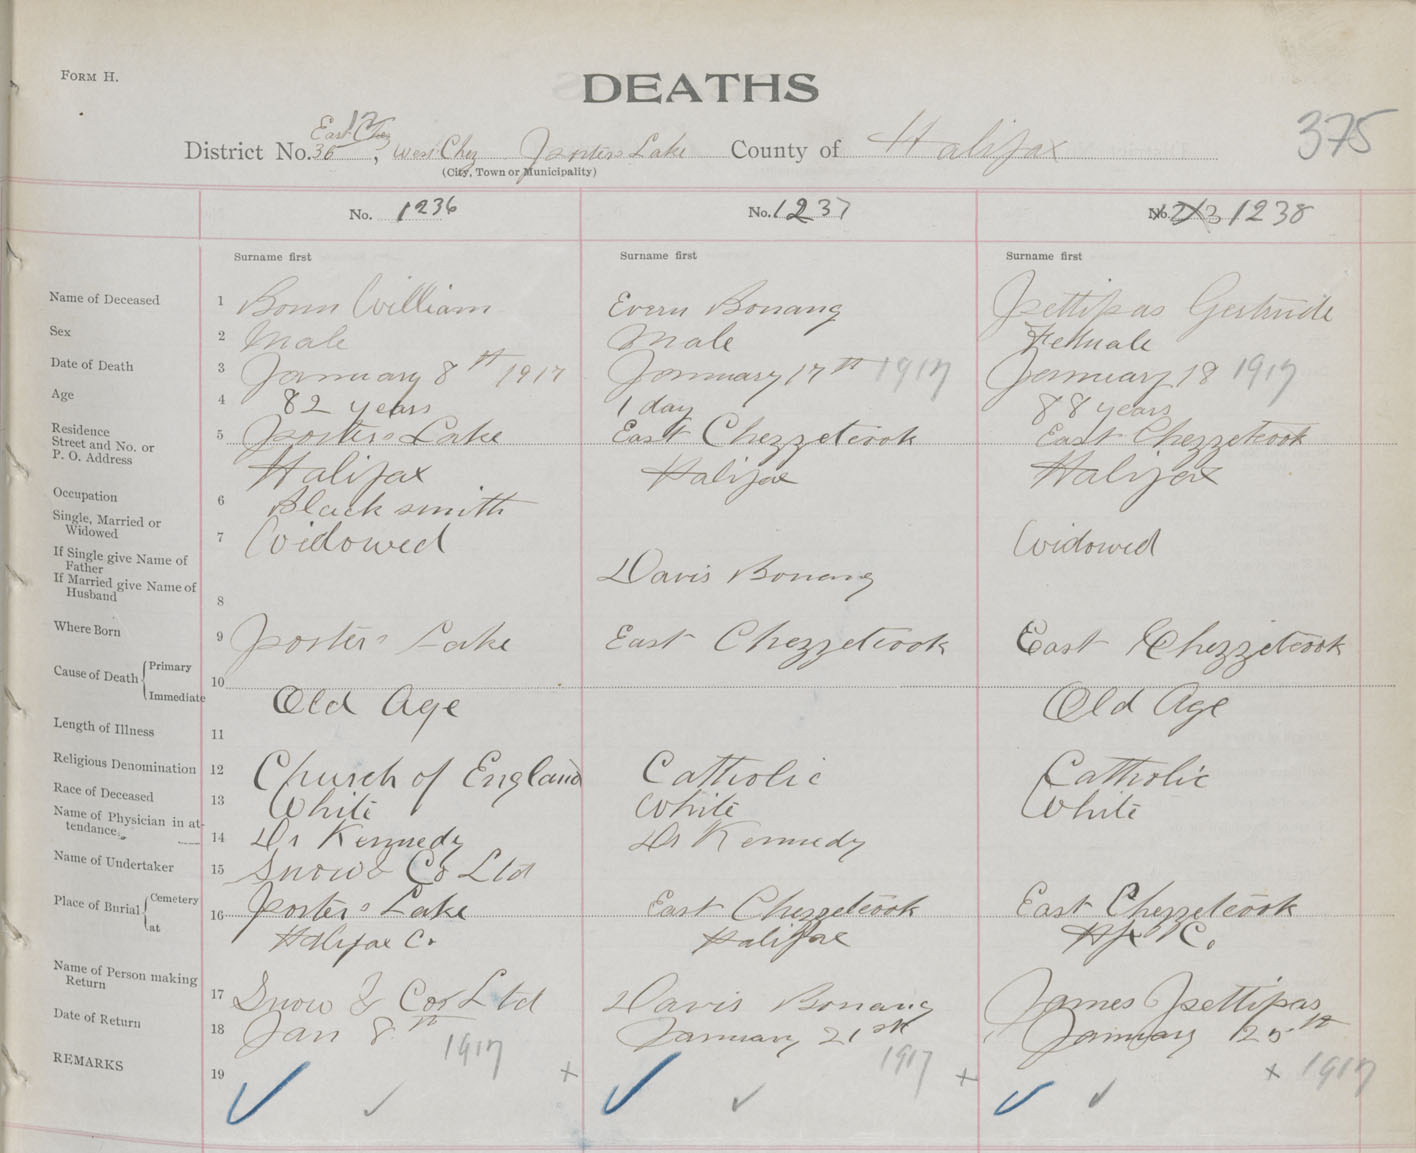 FORM H.
DEATHS
375
12
East Chez
District No. 36, West Chez Porters Lake County of Halifax
(City, Town or Municipality)
No. 1236 No. 1237 No. 1238
Surname first Surname first Surname first
Name of Deceased 1 Bonn William Evern Bonang Pettipas Gertrude
Sex 2 Male Male Female
Date of Death 3 January 8th 1917 January 17th 1917 January 18 1917
Age 4 82 years 1 day 88 years
Residence
Street and No. or
P. O. Address
5 Porters Lake East Chezzetcook East Chezzetcook
Halifax Halifax Halifax
Occupation 6 Blacksmith
Single, Married or
Widowed
7 Widowed Widowed
If Single give Name of
Father
If Married give Name of
Husband
8 Davis Bonang
Where Born 9 Porters Lake East Chezzetcook East Chezzetcook
Cause of Death { Primary
Immediate
10 Old Age Old Age
Length of Illness 11
Religious Denomination 12 Church of England Catholic Catholic
Race of Deceased 13 White White White
Name of Physician in at-
tendance
14 Dr Kennedy Dr Kennedy
Name of Undertaker 15 Snow & Co Ltd
Place of Burial { Cemetery
at
16 Porters Lake East Chezzetcook East Chezzetcook
Halifax Co. Halifax Hfx Co.
Name of Person making
Return
17 Snow & Co Ltd Davis Bonang James Pettipas
Date of Return 18 Jan 8th 1917 January 21st 1917 January 25th 1917
REMARKS 19